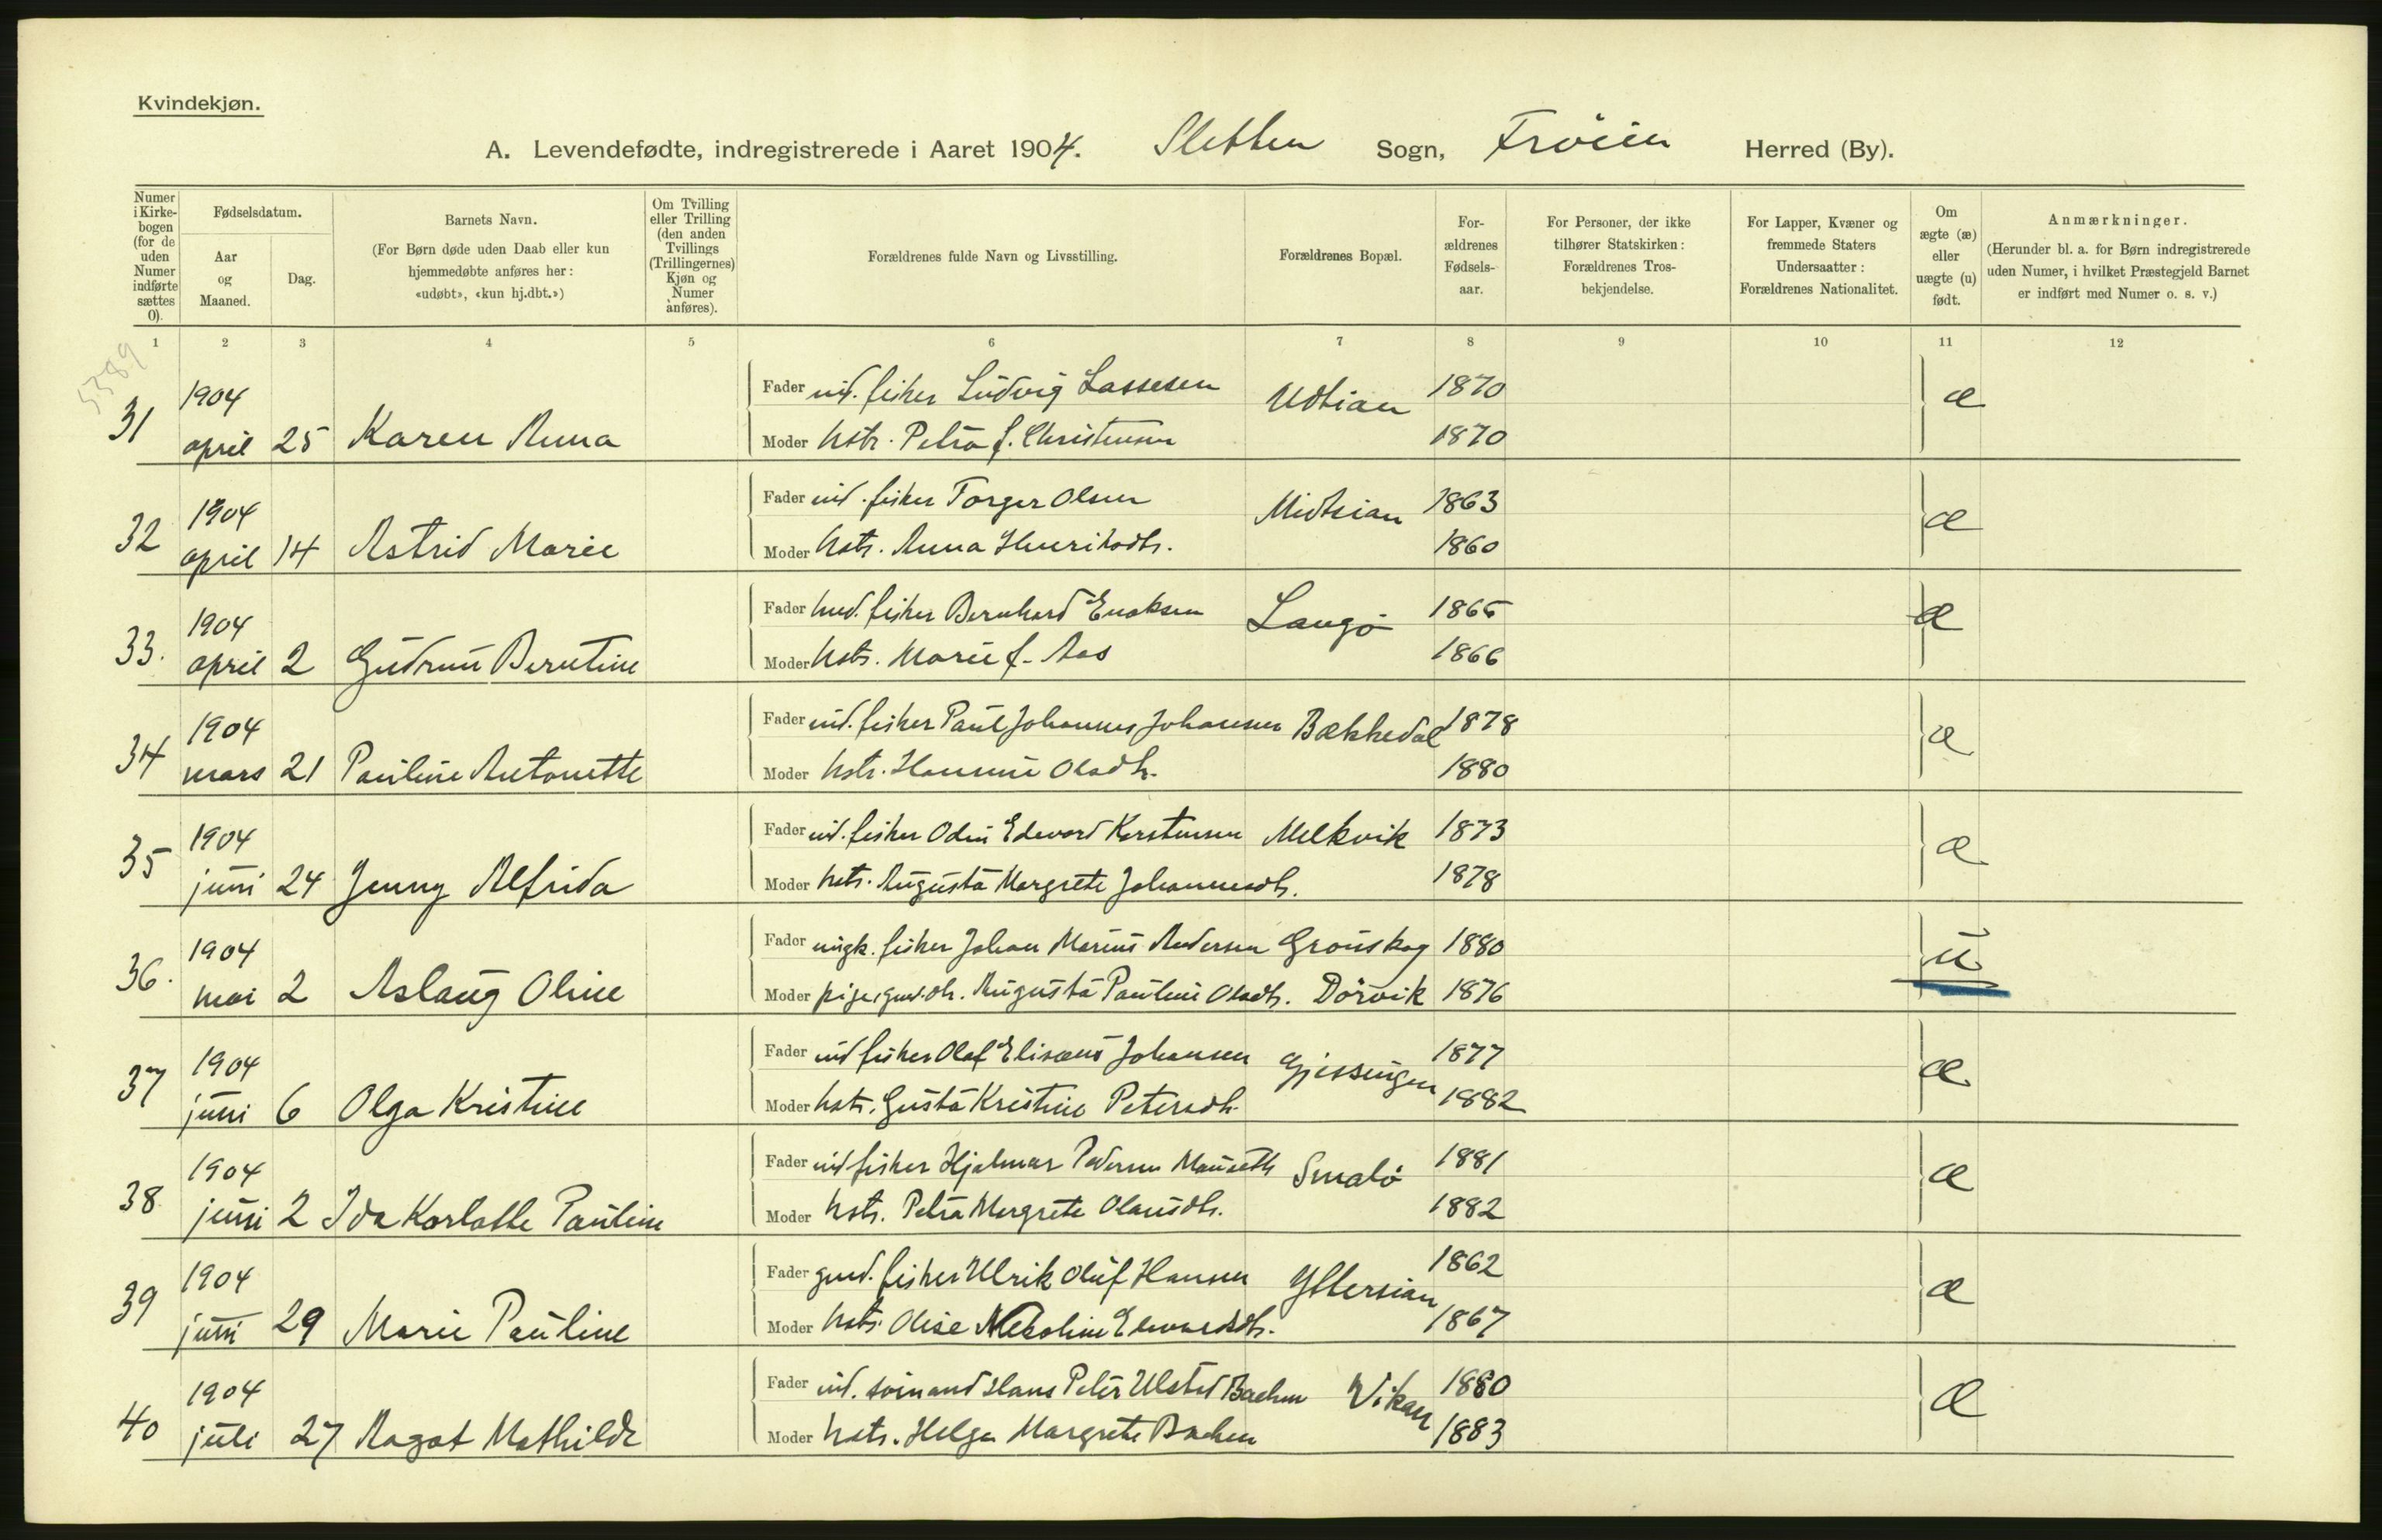 Kvindekjøn.
A. Levendefødte, indregistrerede i Aaret 1904. Sletten Sogn, Frøien Herred (By).
Numer i Kirkebogen (for de uden Numer indførte sættes 0).
Fødselsdatum.
Aar og Maaned.
Dag.
Barnets Navn.
(For Børn døde uden Daab eller kun hjemmedøbte anføres her: «udøbt», «kun hj.dbt.»)
Om Tvilling eller Trilling (den anden Tvillings (Trillingernes) Kjøn og Numer anføres).
Forældrenes fulde Navn og Livsstilling.
Forældrenes Bopæl.
Forældrenes Fødselsaar.
For Personer, der ikke tilhører Statskirken: Forældrenes Trosbekjendelse.
For Lapper, Kvæner og fremmede Staters Undersaatter: Forældrenes Nationalitet.
Om ægte (æ) eller uægte (u) født.
Anmærkninger.
(Herunder bl. a. for Børn indregistrerede uden Numer, i hvilket Præstegjeld Barnet er indført med Numer o. s. v.)
1 2 3 4 5 6 7 8 9 10 11 12
5389
31 1904 april 25 Karen Anna
Fader ind. fisker Ludvig Lassesen Udtian 1870 æ
Moder hstr. Petra f. Christensen 1870
32 1904 april 14 Astrid Marie
Fader ind. fisker Torger Olsen Midtsian 1863 æ
Moder hstr. Anna Henriksdtr. 1860
33. 1904 april 2 Gudrun Berntine
Fader hud. fisker Bernhard Enoksen Langø 1865 æ
Moder hstr. Marie f. Aas 1866
34 1904 mars 21 Pauline Antonette
Fader ind. fisker Paul Johannes Johansen Bækkedal 1878 æ
Moder hstr. Hansine Olsdtr. 1880
35 1904 juni 24 Jenny Alfrida
Fader ind. fisker Odin Edevard Kerstensen Melkvik 1873 æ
Moder hstr. Augusta Margrete Johannesdtr. 1878
36. 1904 mai 2 Aslaug Oline
Fader ungk. fisker Johan Marius Andersen Grønskag 1880 u
Moder pige, gmd.dtr. Augusta Pauline Olsdtr. Dørvik 1876
37 1904 juni 6 Olga Kristine
Fader ind fisker Olaf Elisæus Johansen Gjessingen 1877 æ
Moder hstr. Gusta Kristine Petersdtr. 1882
38 1904 juni 2 Ida Karlotte Pauline
Fader ind fisker Hjalmar Pedersen Mauseth Smalø 1881 æ
Moder hstr. Petra Margrete Olausdtr. 1882
39 1904 juni 29 Marie Pauline
Fader gmd. fisker Ulrik Oluf Hansen Yttersian 1862 æ
Moder hstr. Olise Nekoline Edvardsdtr. 1867
40 1904 juli 27 Ragot Mathilde
Fader ind. sømand Hans Peter Ulsted Bachen Vikan 1880 æ
Moder hstr. Helga Margrete Bachen 1883